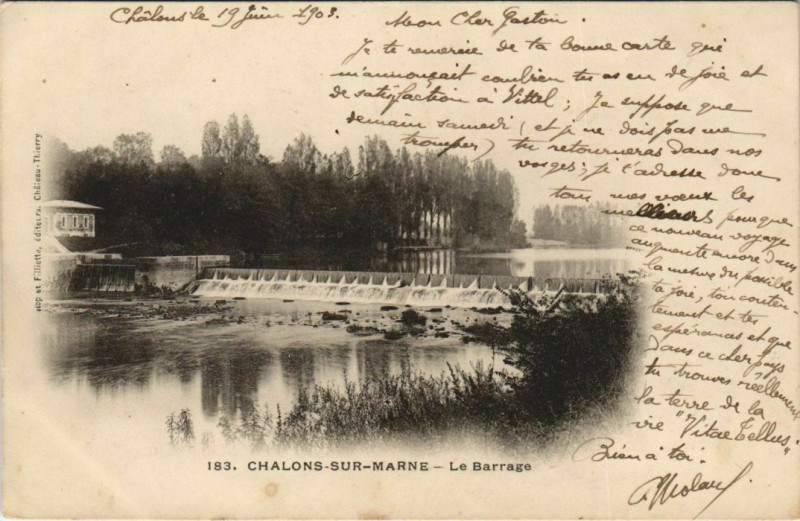 Châlons le 19 Juin 1903.
Mon Cher Gaston.
Je te remercie de ta bonne carte qui
m'annonçait combien tu as eu de joie et
de satisfaction à Vittel ; Je suppose que
demain samedi (et je ne dois pas me
tromper) tu retourneras dans nos
vosges ; je t'adresse donc
tous mes vœux les
meilleurs pourque
ce nouveau voyage
augmente encore dans
la mesure du possible
ta joie, ton conten-
tement et tes
espérances et que
dans ce cher pays
tu trouves réellement
la terre de la
vie "Vitae Tellus"
Bien à toi.
183. CHALONS-SUR-MARNE - Le Barrage
et Filliette, éditeurs, Château-Thierry